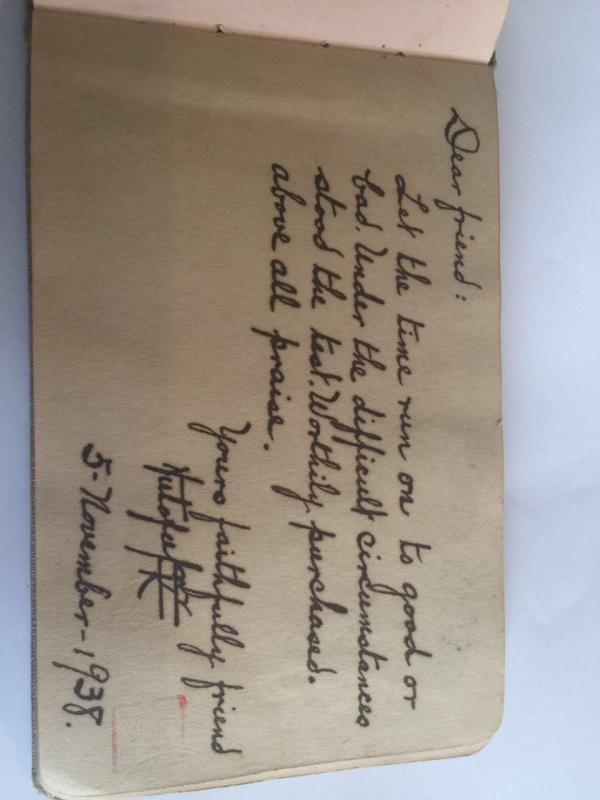 Dear friend:
Let the time run on to good or
bad. Under the difficult circumstances
stood the test. Worthily purchased.
above all praise.
Yours faithfully friend
5-November-1938.